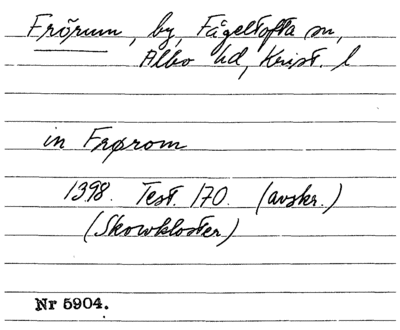 Frörum, by, Fågeltofta sn,
Albo hd, Krist. l
in Frørom
1398. Test. 170. (avskr.)
(Skowkloster)
Nr 5904.